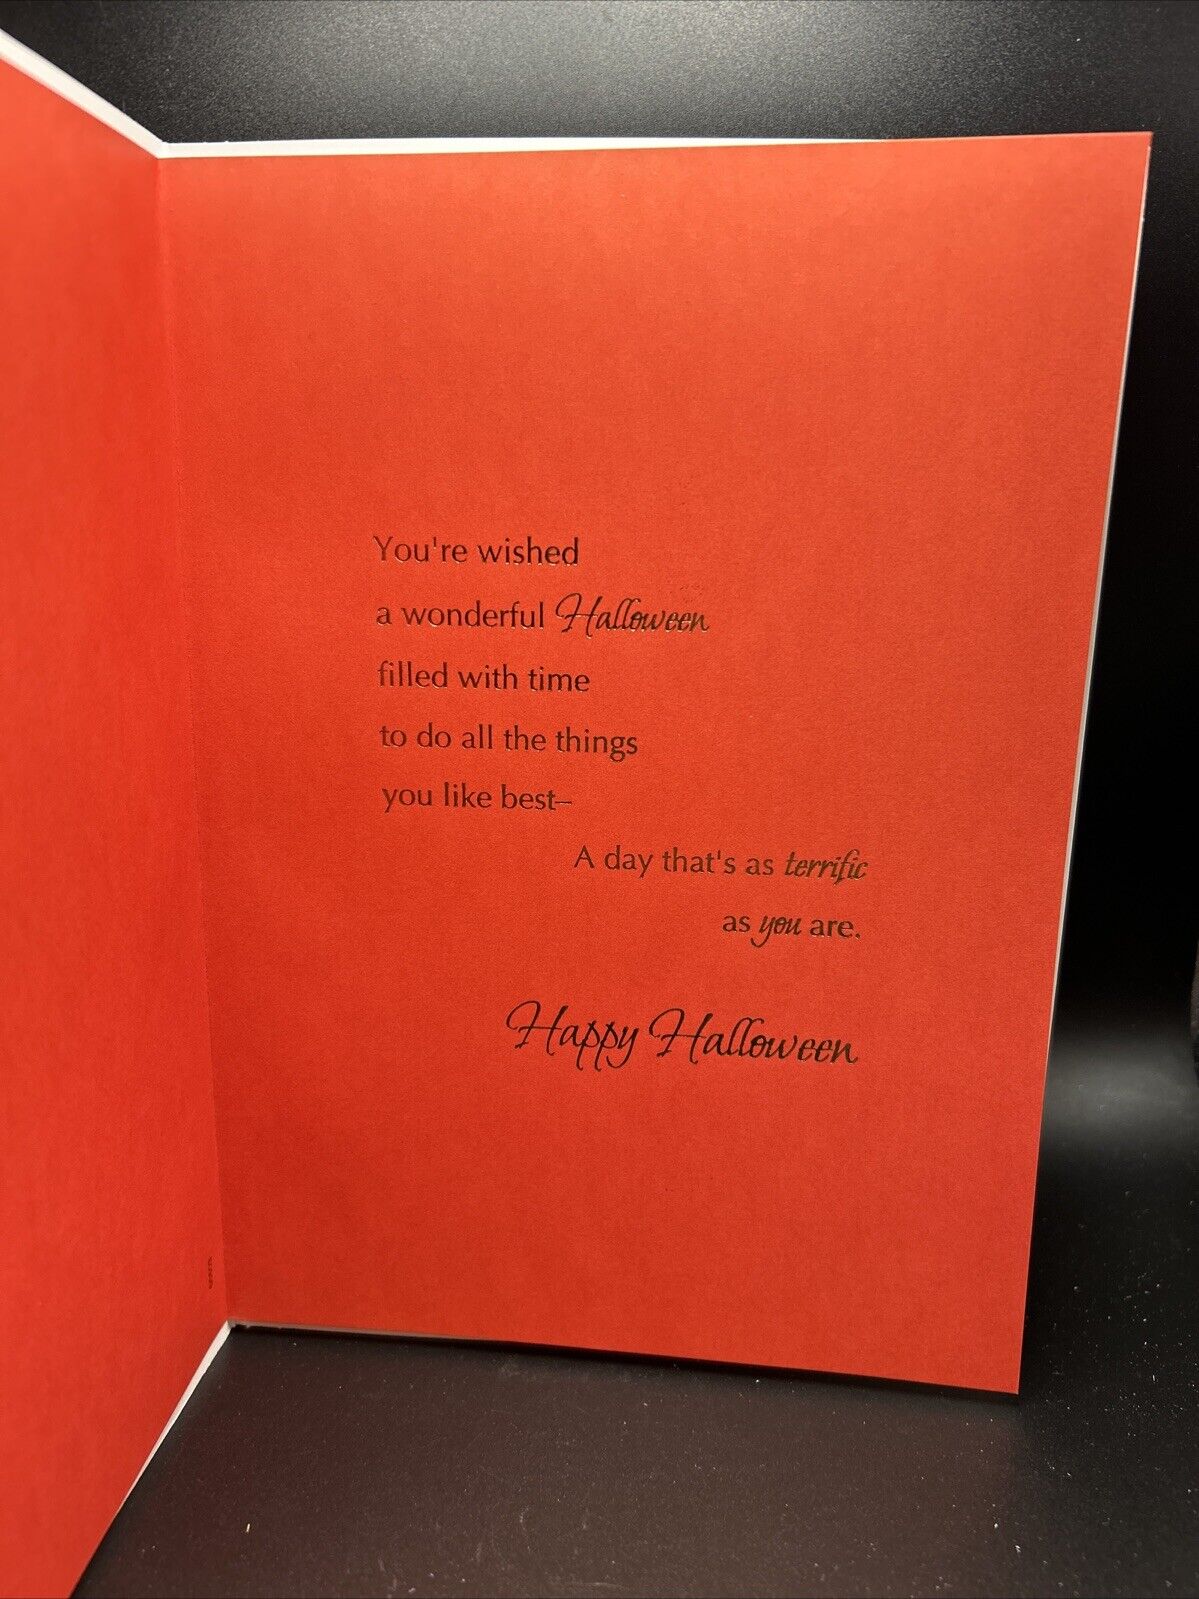 You're wished
a wonderful Halloween
filled with time
to do all the things
you like best–
A day that's as terrific
as you are.
Happy Halloween